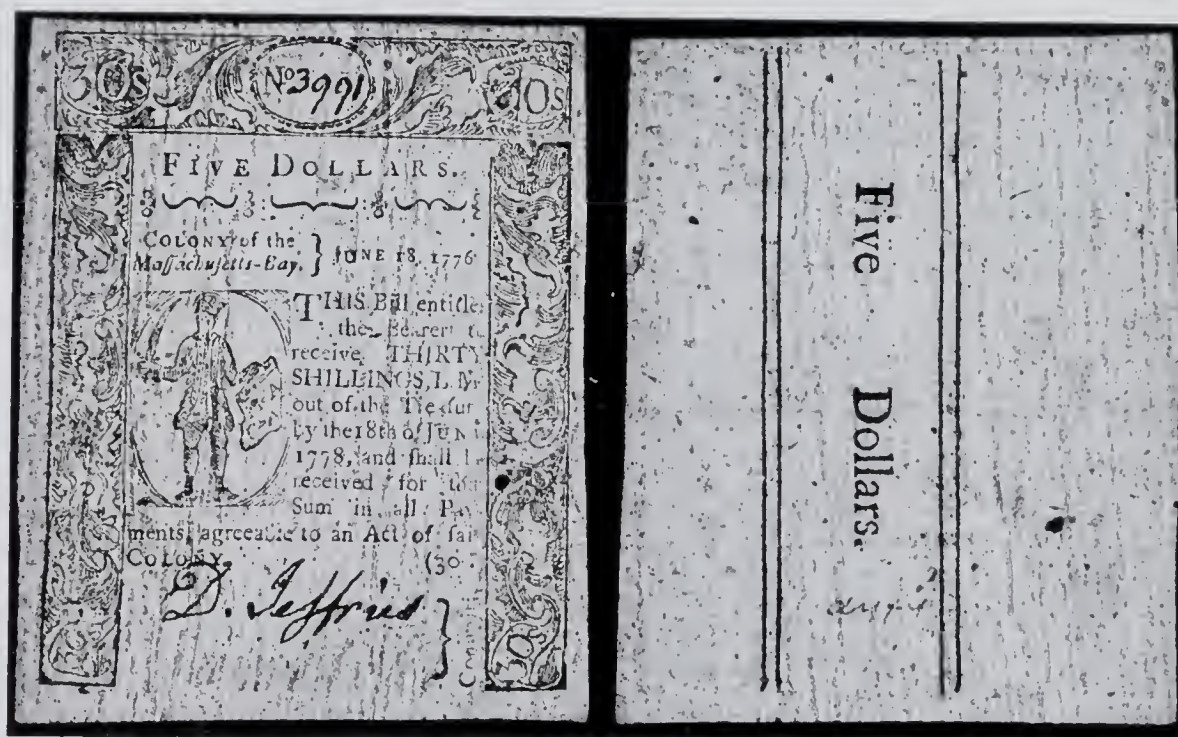 30s No 3991 30s
FIVE DOLLARS.
COLONY of the
Maſſachuſetts-Bay. } JUNE 18, 1776
THIS Bill entitles
the Bearer t
receive THIRTY
SHILLINGS, L. M
out of the Treaſur
by the 18th of JUN
1778, and ſhall b
received for that
Sum in all Pay
ments, agreeable to an Act of ſai
COLONY. (30
D. Jeffries
30s 30s
Five Dollars.